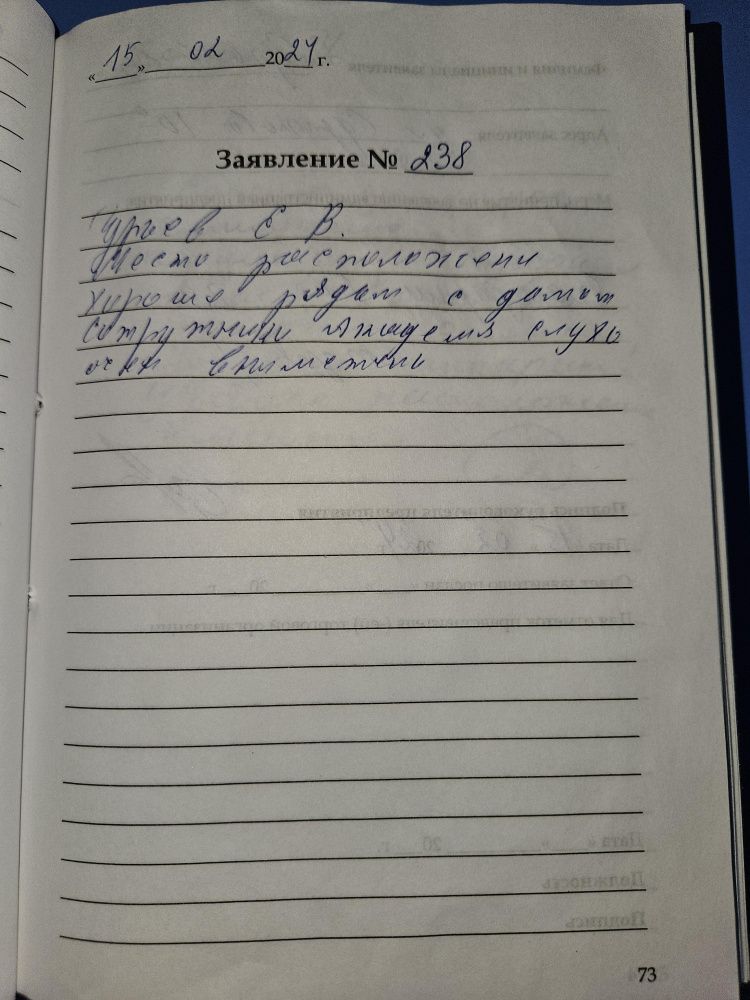 «15» 02 2024 г.
Заявление № 238
Е В.
Место расположени
хороше рядам с домам
сотружники Академя слухо
очен внимателни
73